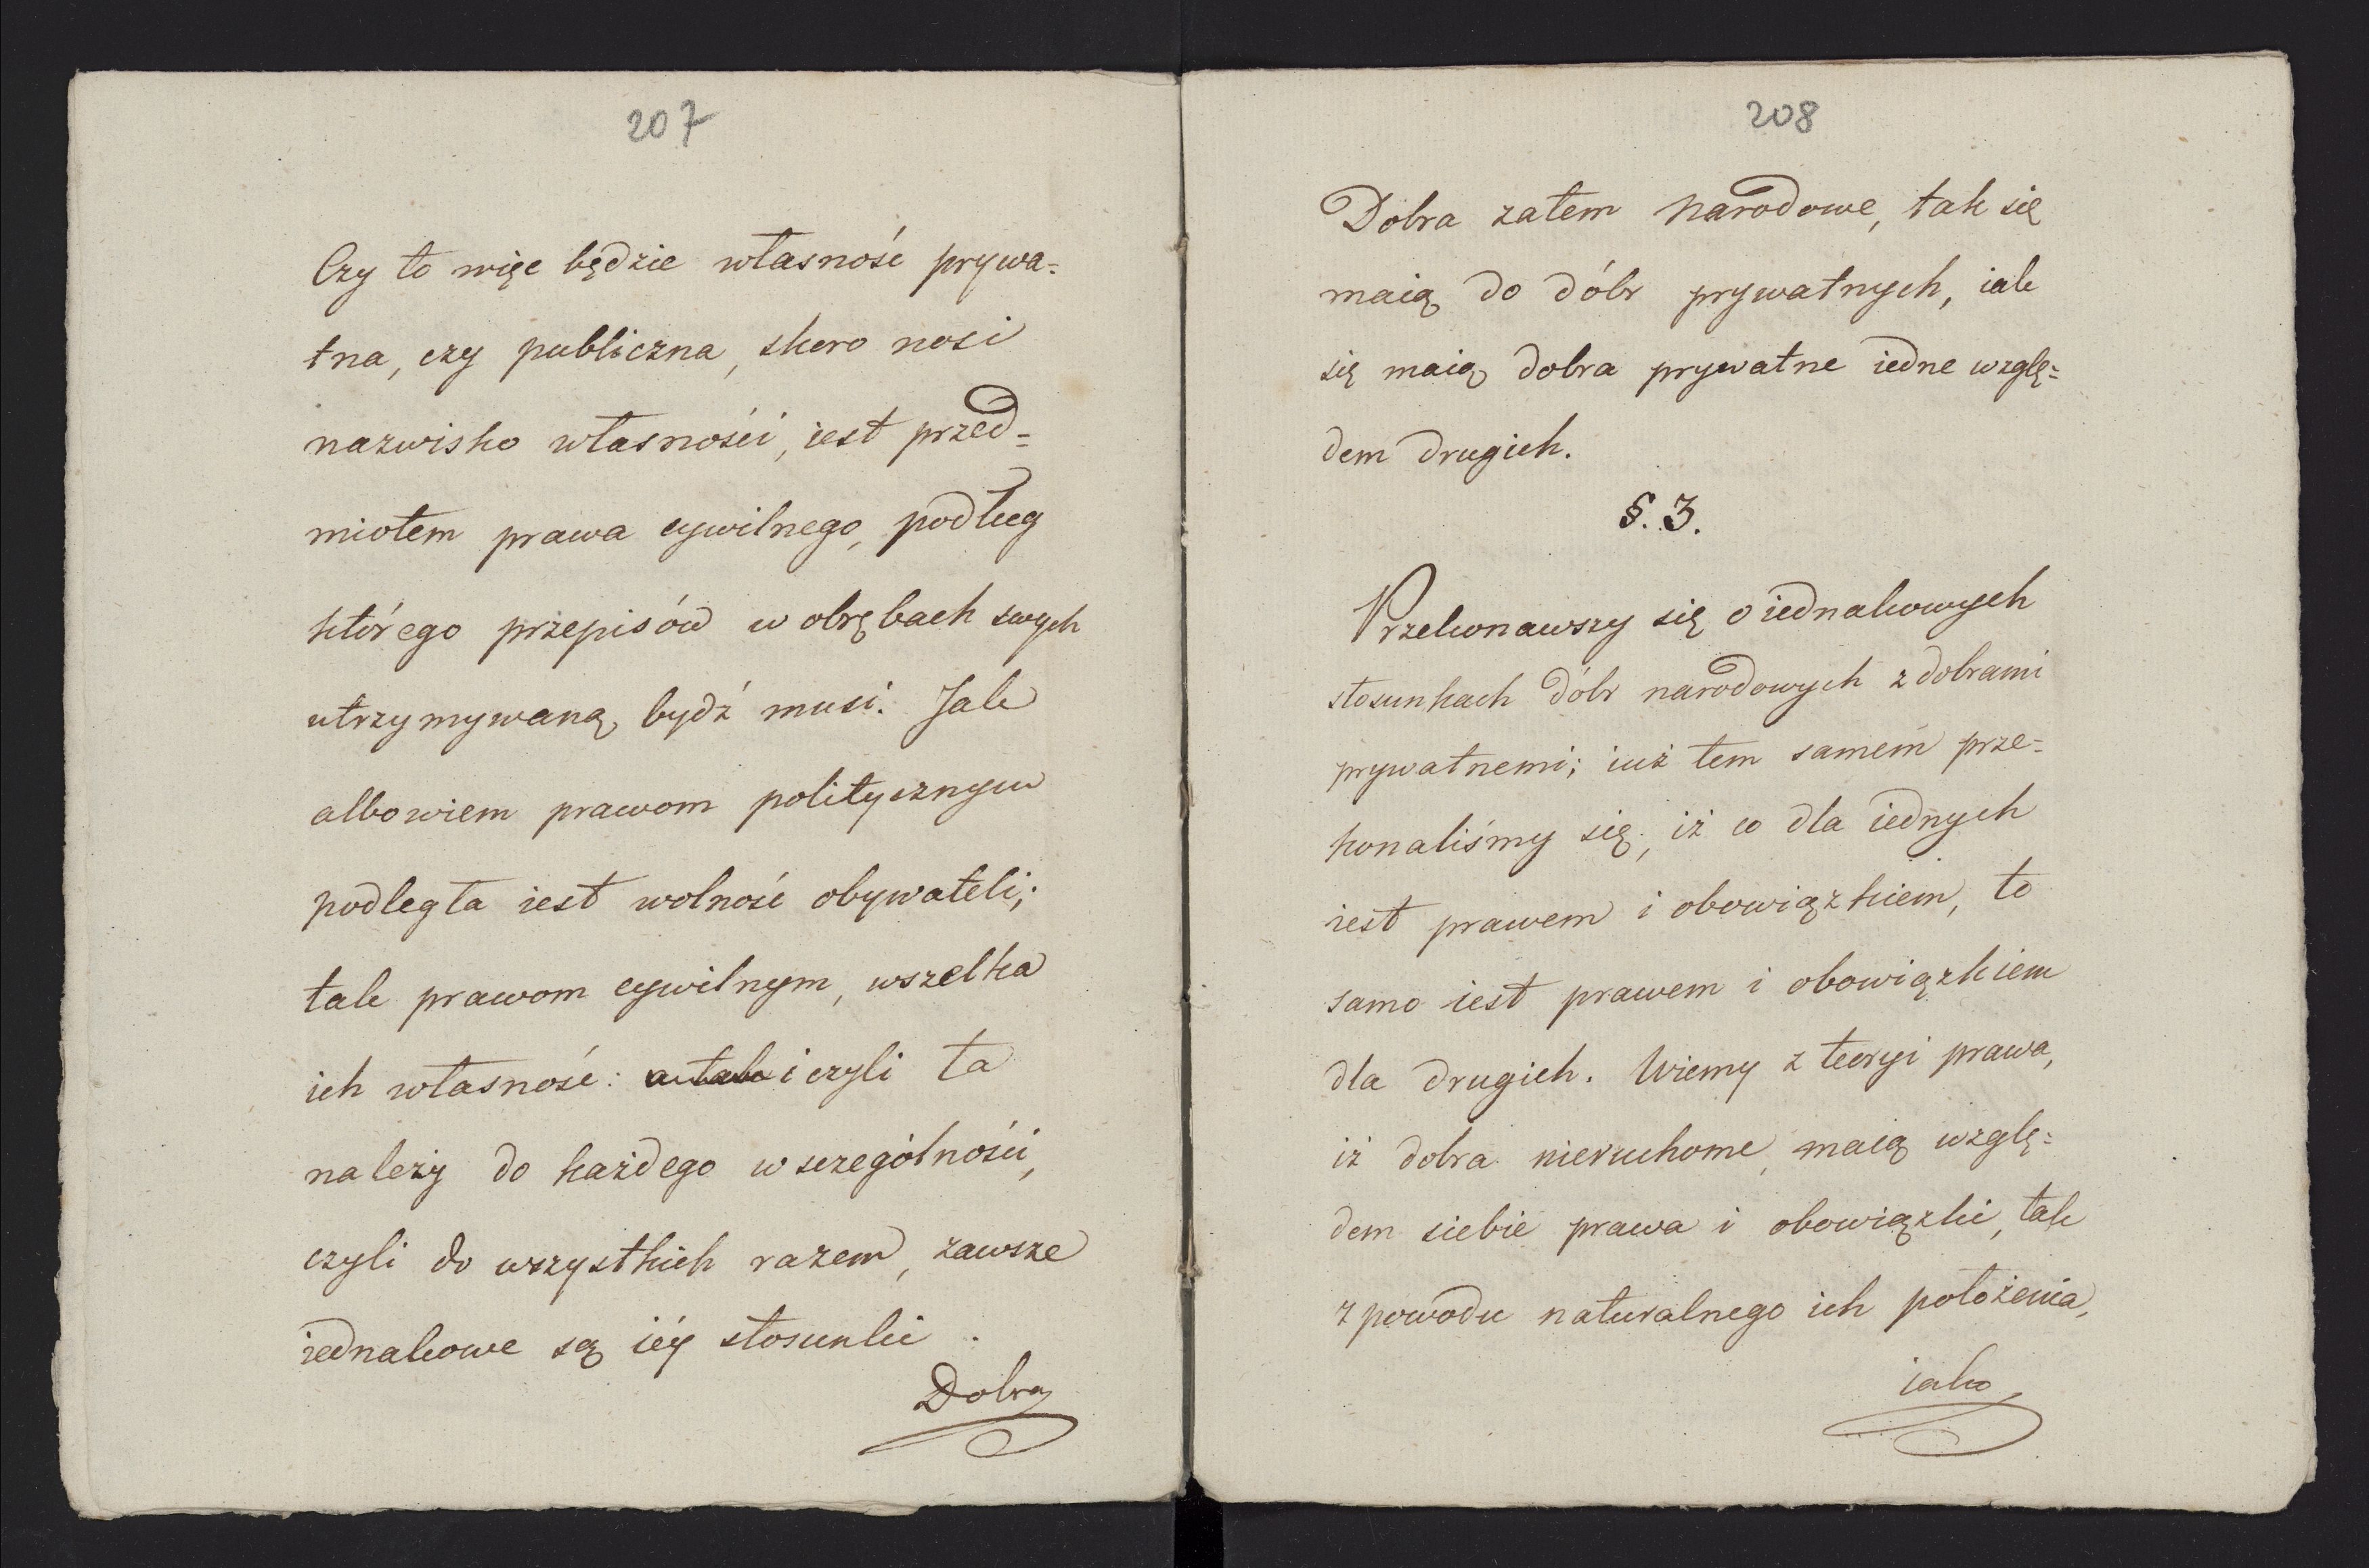 207
Czy to więc będzie własność prywa=
tna, czy publiczna, skoro nosi
nazwisko własności, iest przed=
miotem prawa cywilnego, podług
którego przepisów w obrębach swych
utrzymywaną bydź musi. Jak
albowiem prawom politycznym
podległa iest wolność obywateli;
tak prawom cywilnym, wszelka
ich własność: i czyli ta
należy do każdego w szczególności,
czyli do wszystkich razem, zawsze
iednakowe są iéy stosunki.
Dobra
208
Dobra zatem narodowe, tak się
maią do dóbr prywatnych, iak
się maią dobra prywatne iedne wzglę=
dem drugich.
§. 3.
Przekonawszy się o iednakowych
stosunkach dóbr narodowych z dobrami
prywatnemi; iuż tem samem prze=
konaliśmy się, iż co dla iednych
iest prawem i obowiązkiem, to
samo iest prawem i obowiązkiem
dla drugich. Wiemy z teoryi prawa,
iż dobra nieruchome, maią wzglę=
dem siebie prawa i obowiązki, tak
z powodu naturalnego ich położenia,
iako